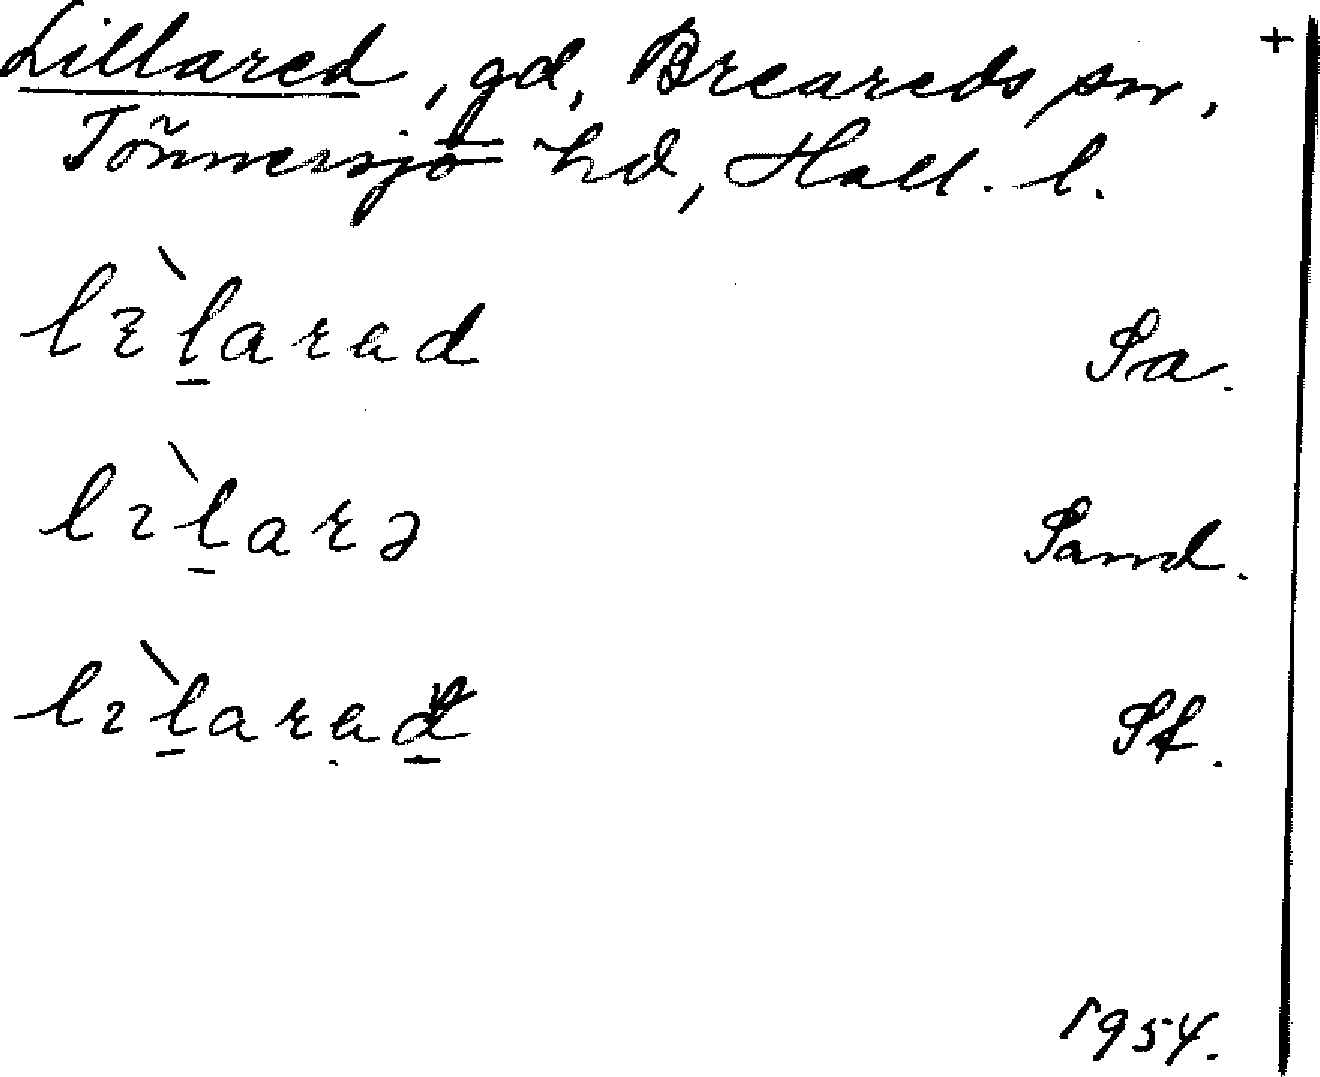 Lillared, gd, Breareds sn, +
Tönnersjö hd, Hall. l.
lɩ̀l̠arad Sa.
lɩ̀l̠arə Sand.
lɩ̀l̠arạd̠ Sf.
1954.